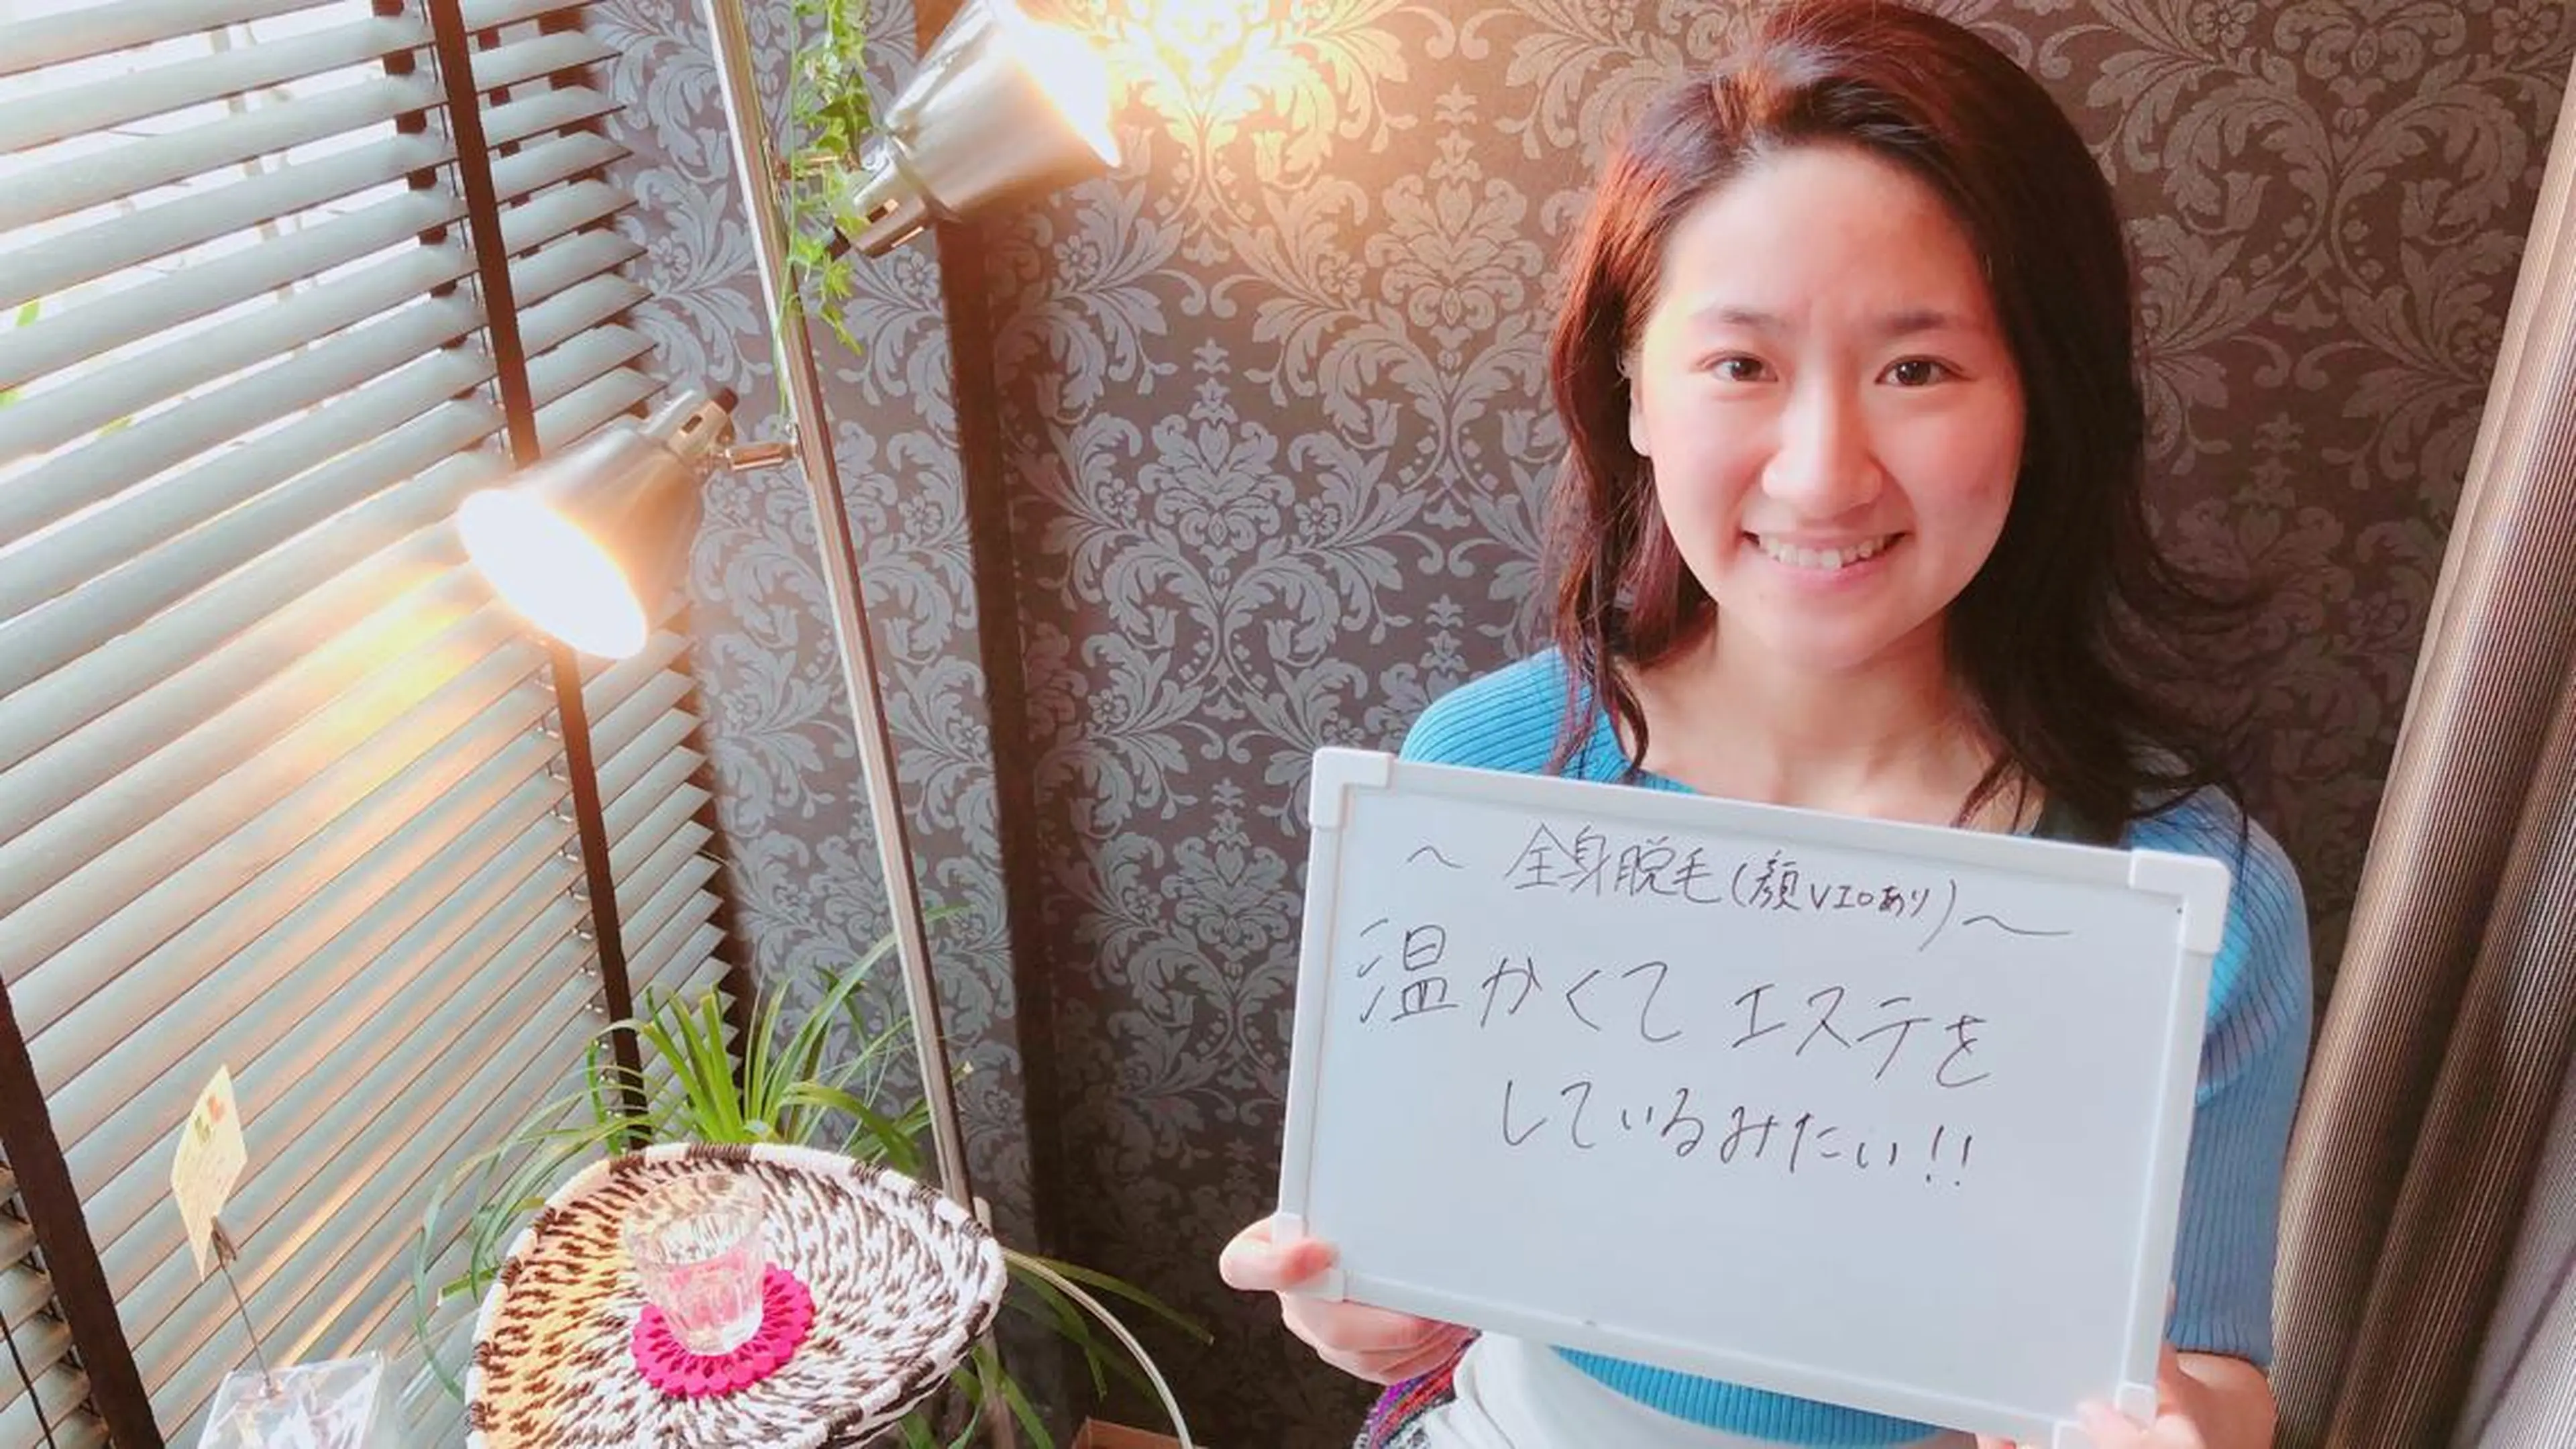 ～ 全身脱毛(顔VIOあり)～
温かくて エステを
しているみたい!!